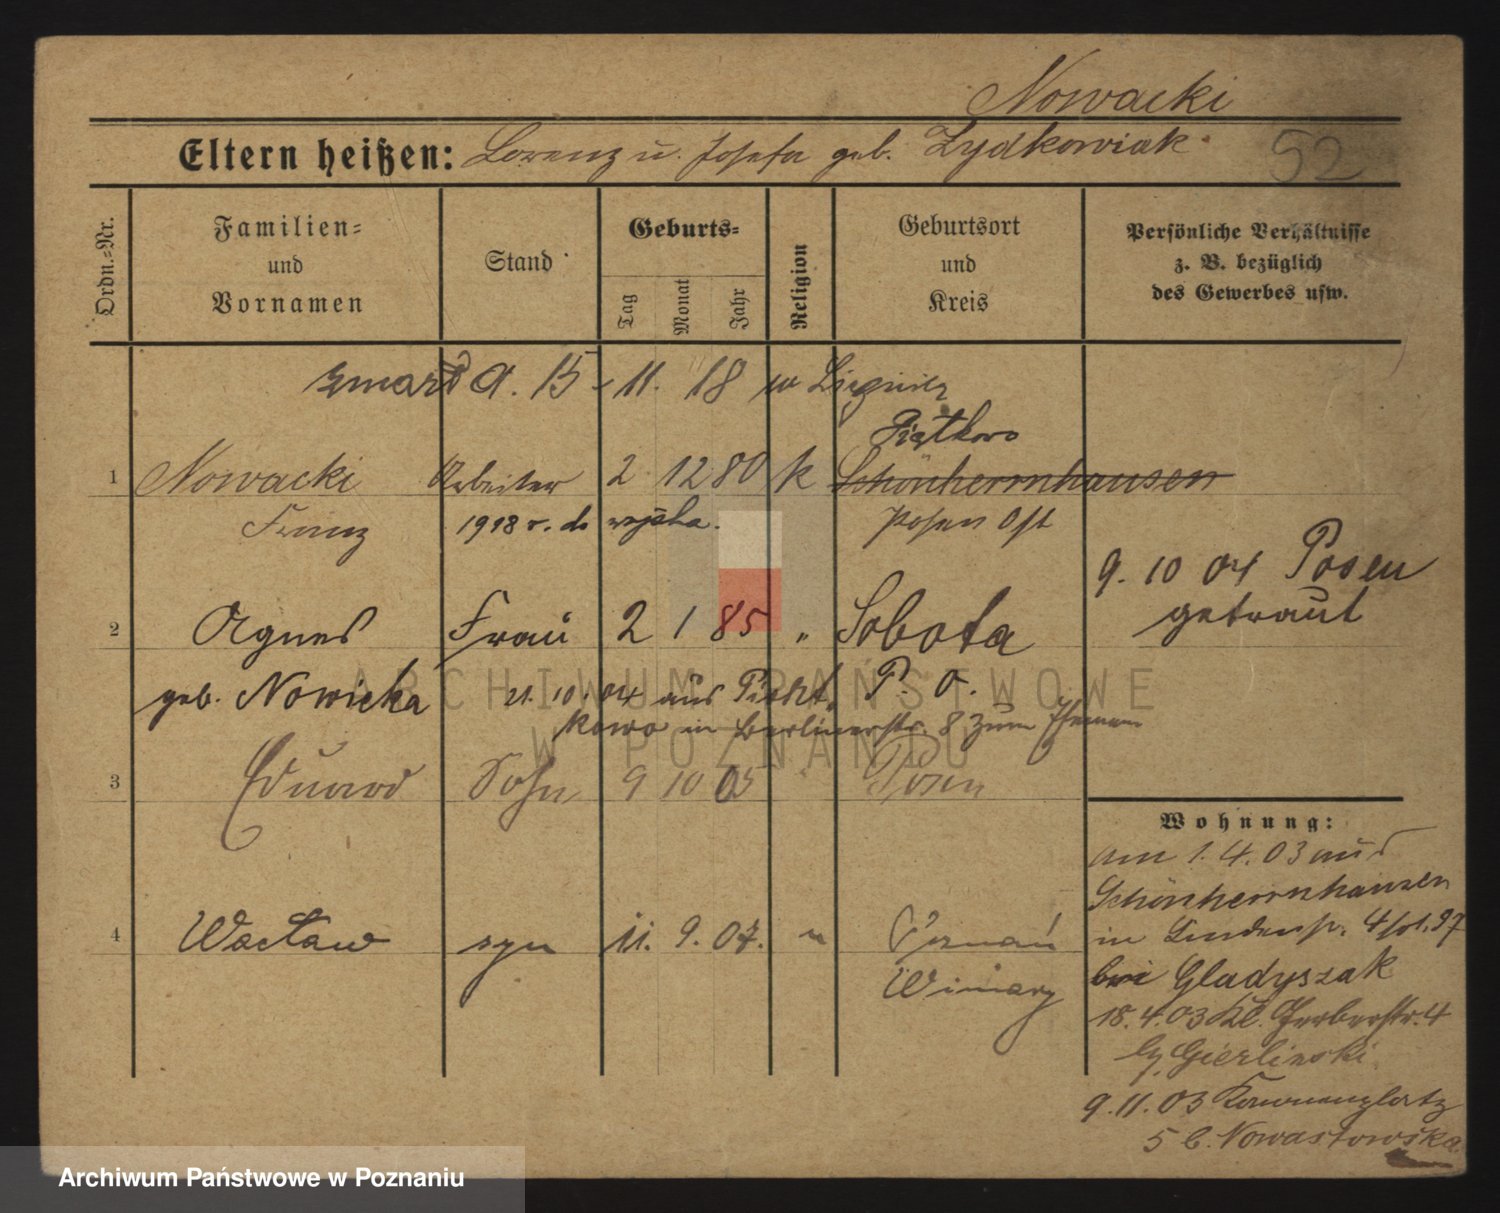 Nowacki
Eltern heißen: Lorenz u. Josefa geb. Zydkowiak.
52
Ordn.=Nr.
Familien=
und
Vornamen
Stand
Geburts=
Tag
Monat
Jahr
Religion
Geburtsort
und
Kreis
Persönliche Verhältnisse
z. B. bezüglich
des Gewerbes usw.
zmarł 15. 11. 18 w Liegnitz
Piątkowo
1 Nowacki Arbeiter 2 12 80 k Schönherrnhausen
Franz 1918 r. do wojska. Posen Ost
9. 10 04 Posen
getraut
2 Agnes Frau 2 1 85 " Sobota
geb. Nowicka 21. 10. 04 aus Piont= P. O.
kowo in Berlinerstr. 8 zum Ehemann
3 Eduard Sohn 9 10 05 " Posen
4 Wacław syn 11. 9. 07. " Poznań
Winiary
Wohnung:
am 1. 4. 03 aus
Schönherrnhausen
in Lindenstr. 4
bei Gladyszak
18. 4. 03 Kl. Gerberstr. 4
b. Gierlinski
9. 11. 03 Kannenplatz
5 b. Nowastowska
ARCHIWUM PAŃSTWOWE
W POZNANIU
Archiwum Państwowe w Poznaniu